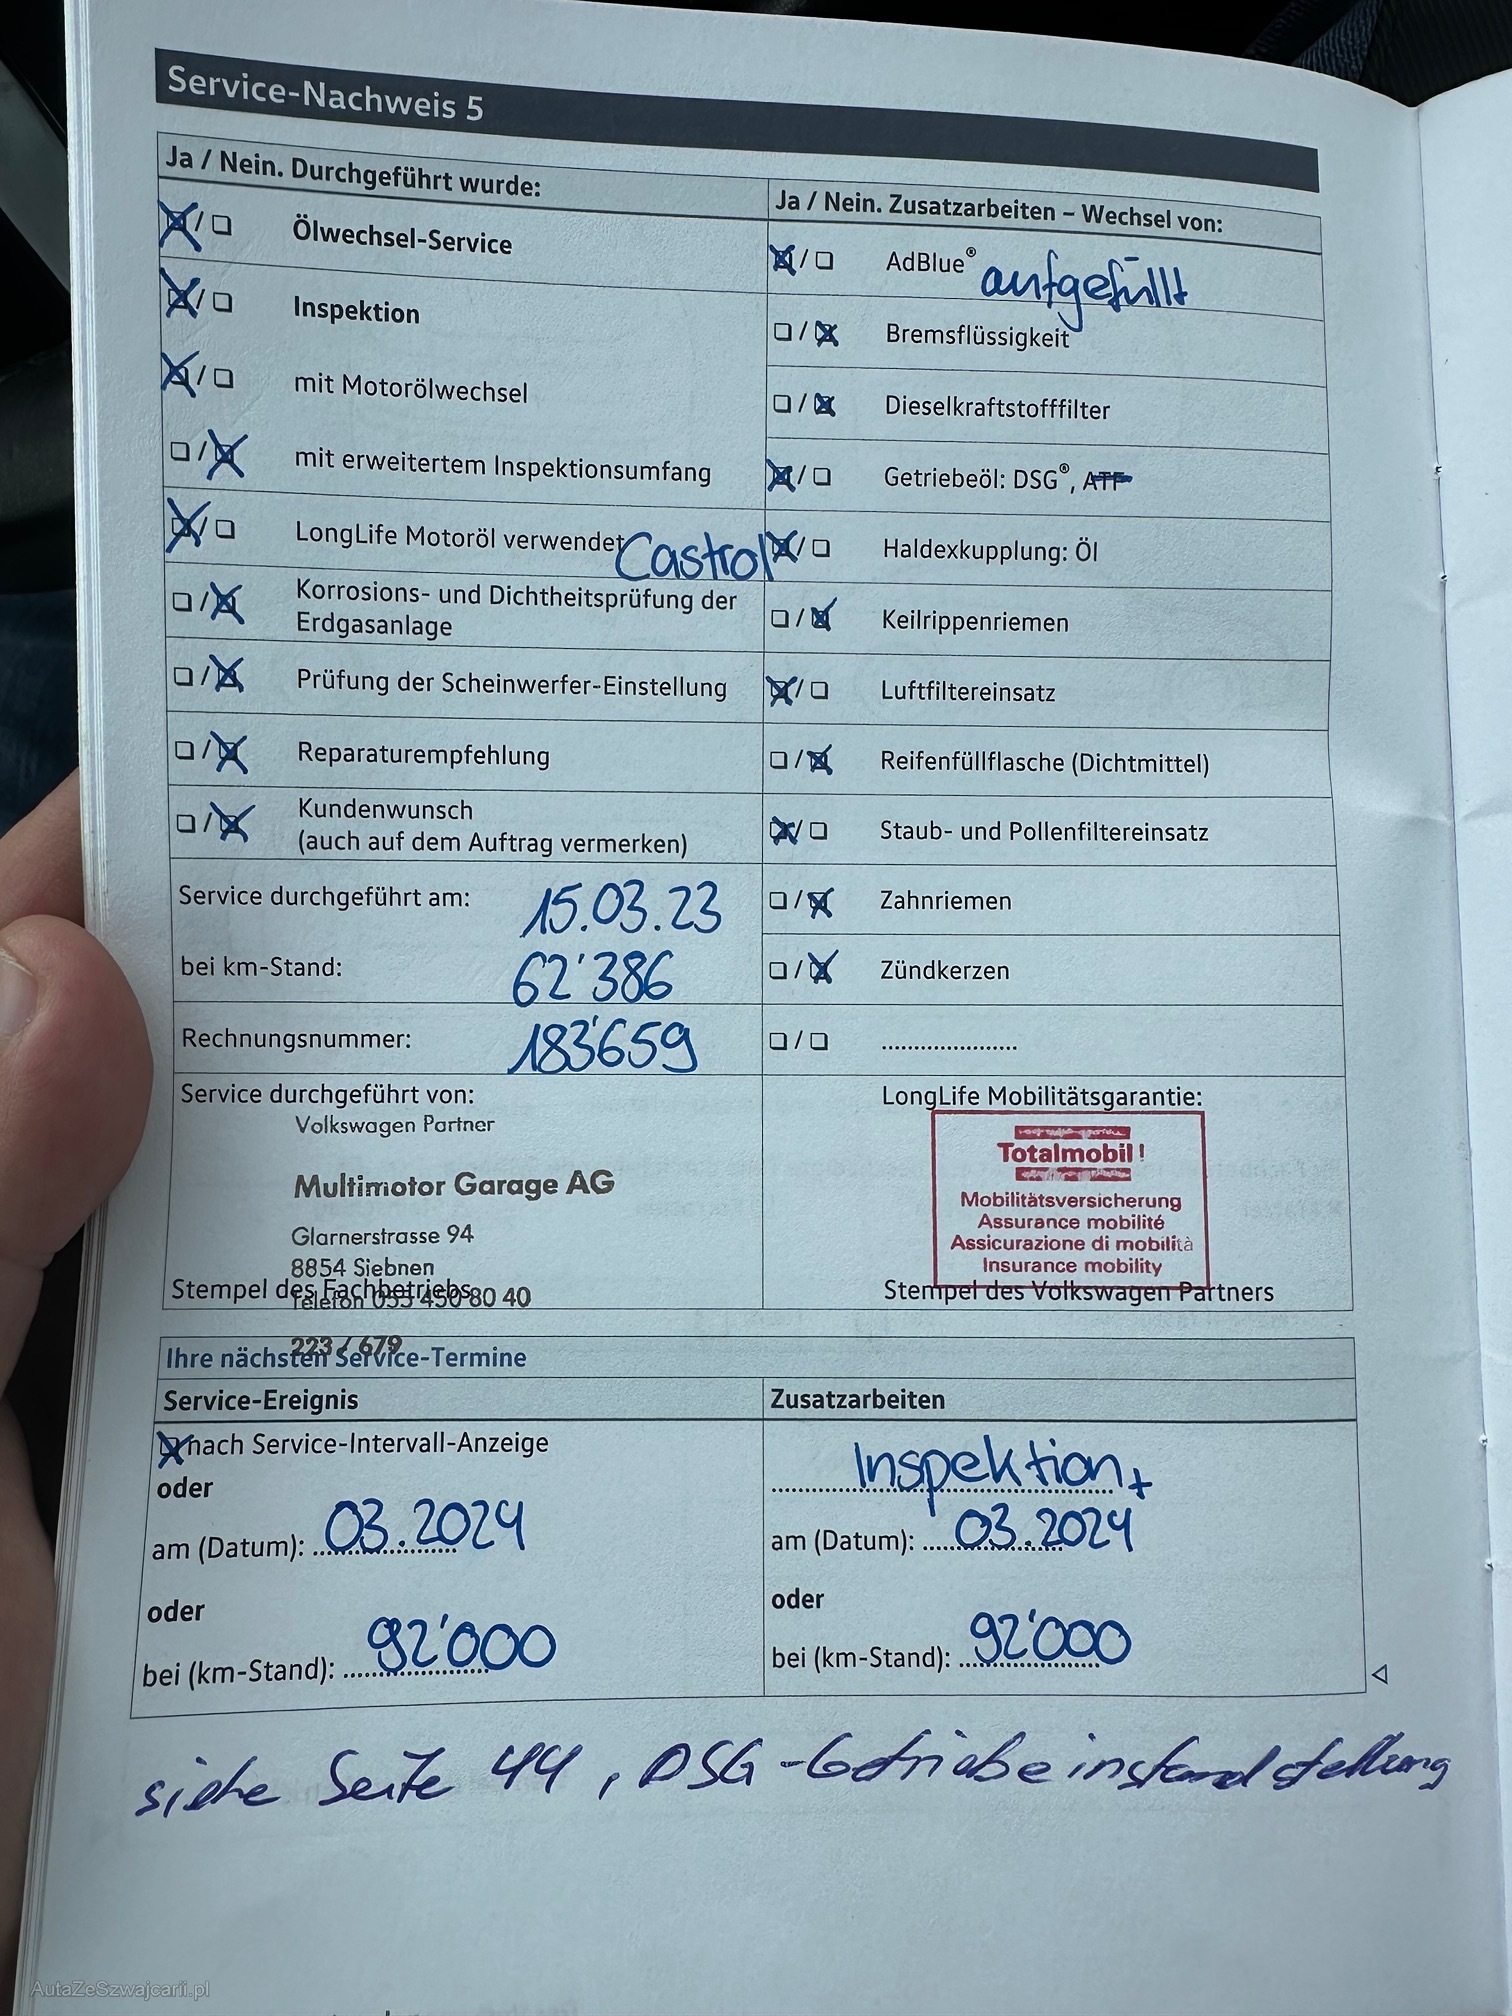 Service-Nachweis 5
Ja / Nein. Durchgeführt wurde:
Ölwechsel-Service
Inspektion
mit Motorölwechsel
mit erweitertem Inspektionsumfang
LongLife Motoröl verwendet Castrol
Korrosions- und Dichtheitsprüfung der
Erdgasanlage
Prüfung der Scheinwerfer-Einstellung
Reparaturempfehlung
Kundenwunsch
(auch auf dem Auftrag vermerken)
Service durchgeführt am: 15.03.23
bei km-Stand: 62'386
Rechnungsnummer: 183'659
Service durchgeführt von:
Volkswagen Partner
Multimotor Garage AG
Glarnerstrasse 94
8854 Siebnen
Telefon 055 450 80 40
Stempel des Fachbetriebs
223 / 679
Ja / Nein. Zusatzarbeiten – Wechsel von:
AdBlue® aufgefüllt
Bremsflüssigkeit
Dieselkraftstofffilter
Getriebeöl: DSG®, ATF
Haldexkupplung: Öl
Keilrippenriemen
Luftfiltereinsatz
Reifenfüllflasche (Dichtmittel)
Staub- und Pollenfiltereinsatz
Zahnriemen
Zündkerzen
LongLife Mobilitätsgarantie:
Totalmobil!
Mobilitätsversicherung
Assurance mobilité
Assicurazione di mobilità
Insurance mobility
Stempel des Volkswagen Partners
Ihre nächsten Service-Termine
Service-Ereignis
nach Service-Intervall-Anzeige
oder
am (Datum): 03.2024
oder
bei (km-Stand): 92'000
Zusatzarbeiten
Inspektion+
am (Datum): 03.2024
oder
bei (km-Stand): 92'000
siehe Seite 44, DSG-Getriebeinstandstellung
AutaZeSzwajcarii.pl